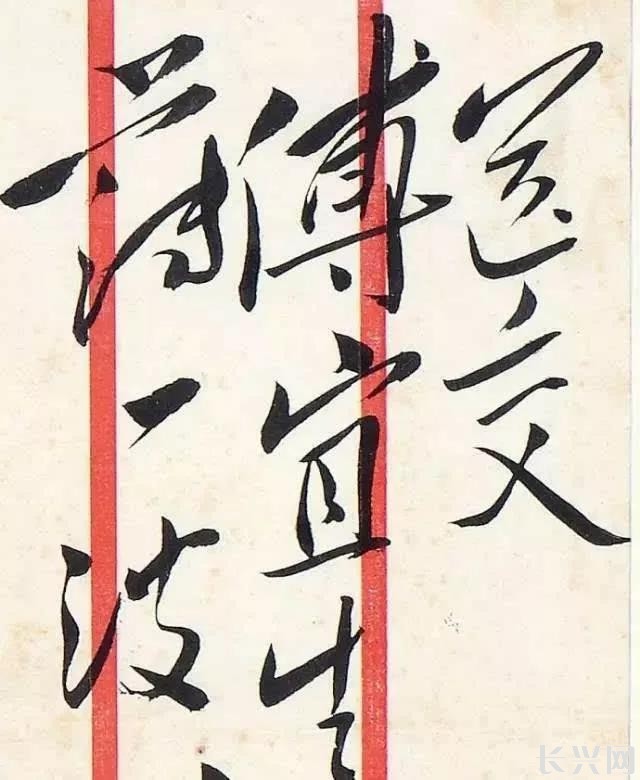 送交
傅宜生
薄一波
长兴网